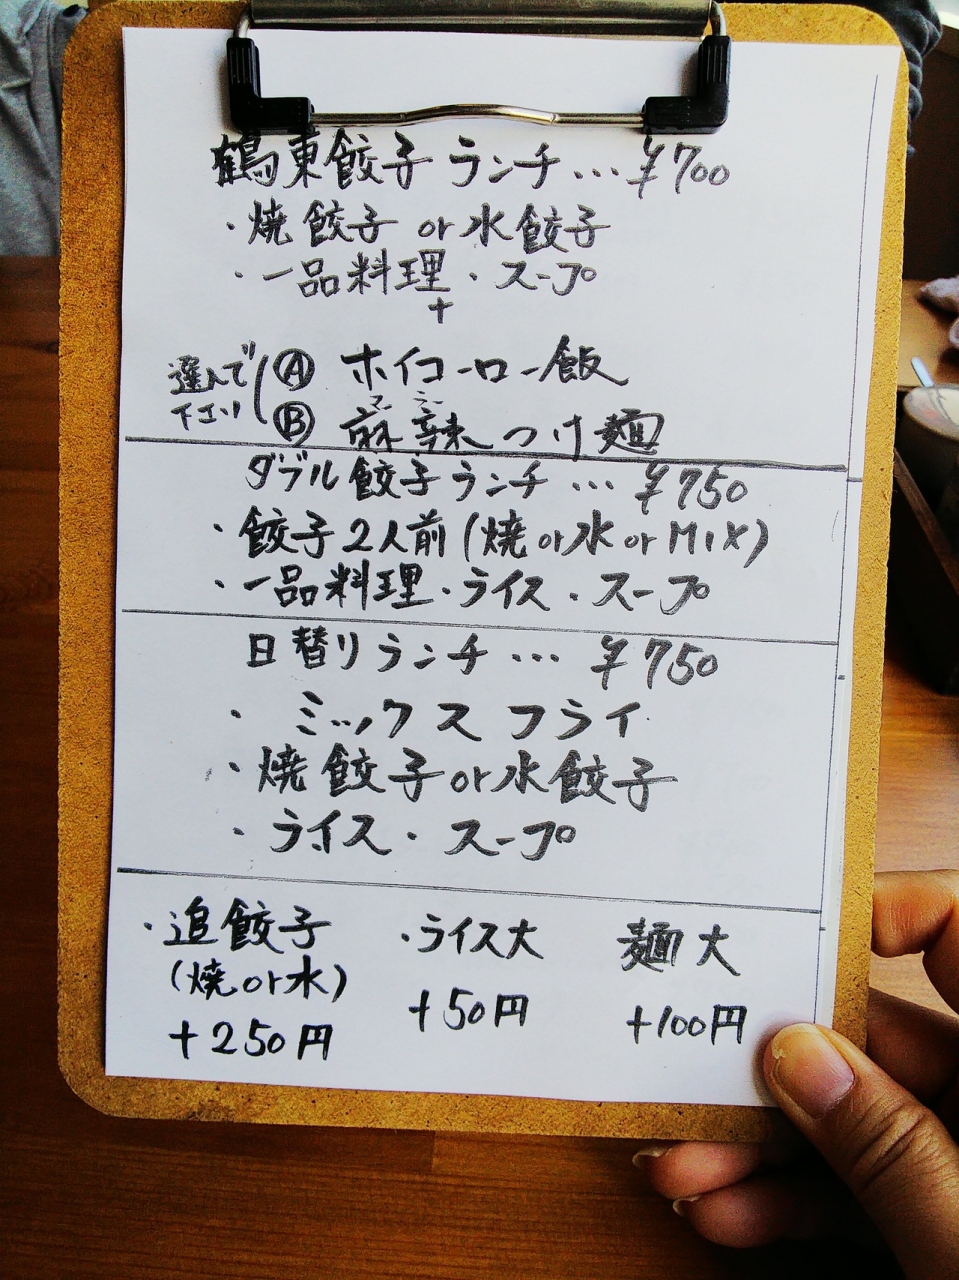 鶴東餃子ランチ…¥700
・焼餃子 or 水餃子
・一品料理・スープ
+
選んで
下さい
Ⓐ ホイコーロー飯
マ ラー
Ⓑ 麻辣つけ麺
ダブル餃子ランチ…¥750
・餃子2人前(焼or水orMIX)
・一品料理・ライス・スープ
日替りランチ…¥750
・ミックスフライ
・焼餃子or水餃子
・ライス・スープ
・追餃子
(焼or水)
+250円
・ライス大
+50円
麺大
+100円